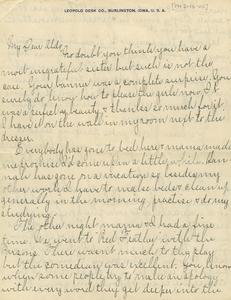 LEOPOLD DESK CO., BURLINGTON, IOWA, U. S. A.
My Dear Aldo
No doubt you think you have a
most ungrateful sister but such is not the
case. Your banner was a complete surprise. You
surely do know how to please the girls now. It
was a perfect beauty & thanks so much for it.
I have it on the wall in my room next to the
dresser.
Everybody has gone to bed here & mama made
me promise I'd come up in a little while.
has gone on a vacation & besides my
other work I have to make beds & clean up
generally in the morning, practise & do my
studying.
The other night mama & I had a fine
time. We went to "Red Feather" with the
There wasn't much to the play
but the comedian was excellent. You know
when some people try to make an
with every word they get deeper into the